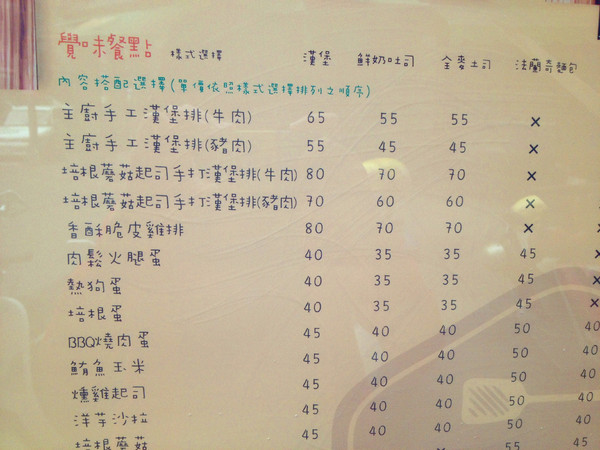 覺味餐點 樣式選擇 漢堡 鮮奶吐司 全麥土司 法蘭奇麵包
內容搭配選擇(單價依照樣式選擇排列之順序)
主廚手工漢堡排(牛肉) 65 55 55 ×
主廚手工漢堡排(豬肉) 55 45 45 ×
培根蘑菇起司手打漢堡排(牛肉) 80 70 70 ×
培根蘑菇起司手打漢堡排(豬肉) 70 60 60 ×
香酥脆皮雞排 80 70 70 × ×
肉鬆火腿蛋 40 35 35 45 ×
熱狗蛋 40 35 35 45 ×
培根蛋 40 35 35 45 ×
BBQ燒肉蛋 45 40 40 50 40
鮪魚玉米 45 40 40 50 40
燻雞起司 45 40 40 50 40
洋芋沙拉 45 40 40 50 40
培根蘑菇 45 40 40 50 40
× 55 45